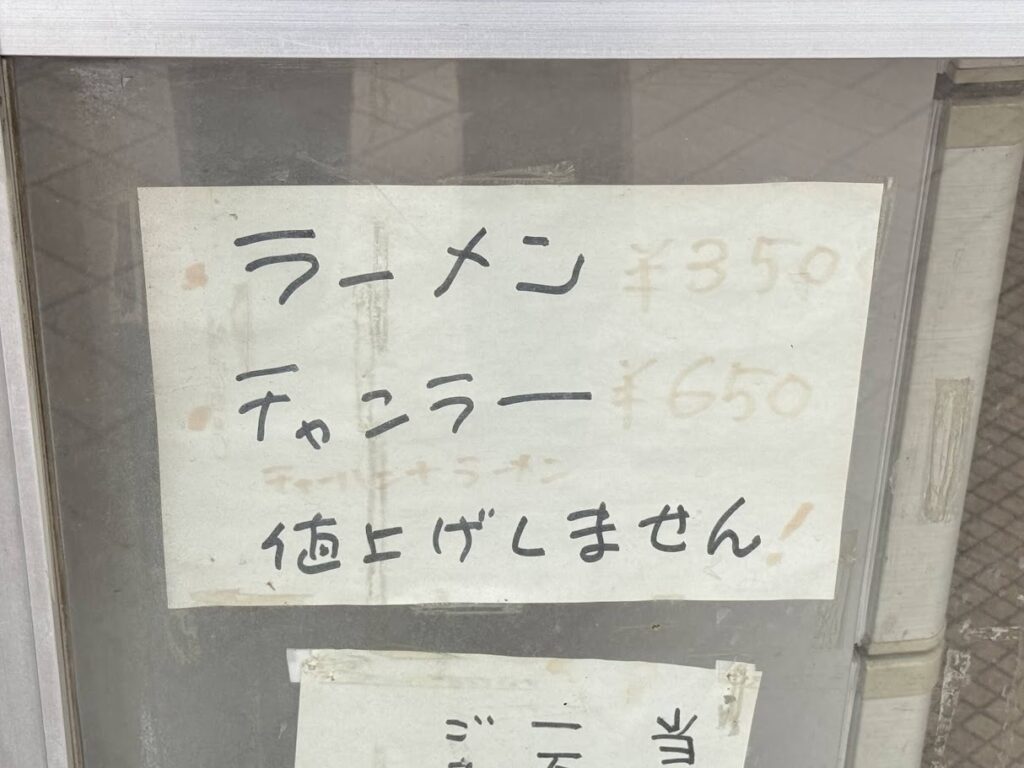 ・ラーメン ¥350
・チャンラー ¥650
チャーハンとラーメン
値上げしません!
当
一
ご